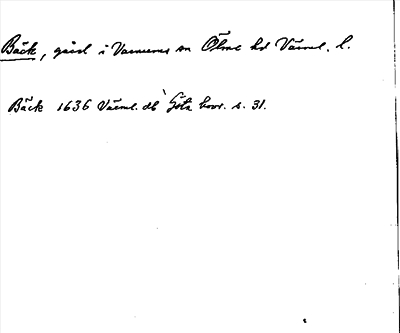 Bäck, gård i Varnums sn Ölme hd Värml. l.
Bäck 1636 Värml. db Göta hovr. s. 31.